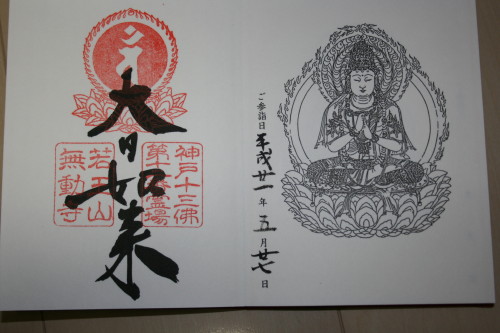 ご参詣日 平成廿一年五月廿七日
大日如来
神戸十三佛
霊場
若王山
無動寺